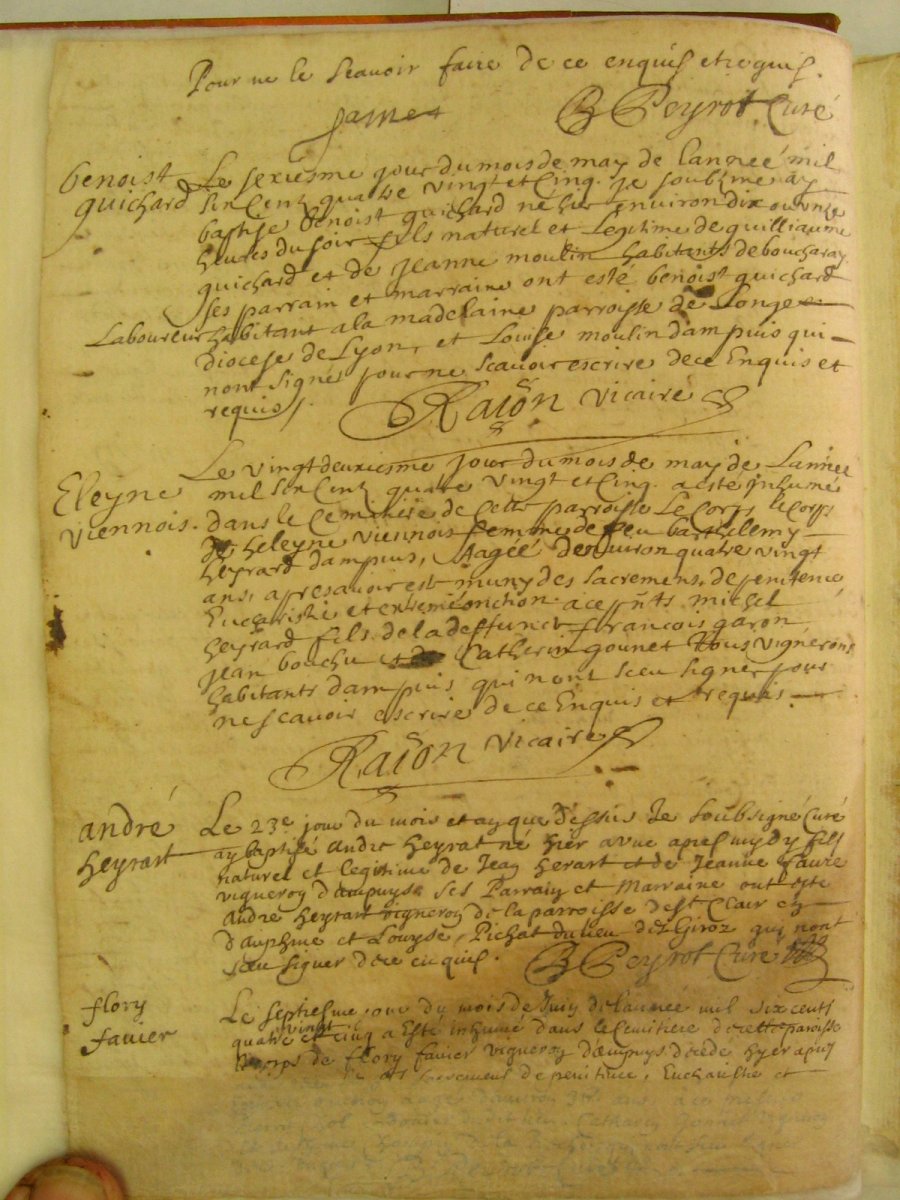 Pour ne le Scavoir faire de ce enquis et requis.
B Peyrot Curé
benoist
guichard
Le sexiesme jour du mois de may de lanneé mil
six Centz quatre vingt et Cinq. je soubzmé ay
baptisé benoist guichard né hier environ dix ou unze
heures du soir fils naturel et Legitime de guilliaume
guichard et de jeanne moulin habitants de boucharay
ses parrain et marraine ont esté benoist guichard
Laboureur habitant a la madelaine parroisse de Longe
diocese de Lyon, et Louise moulin dampuis qui
nont signé pour ne scavoir escrire de ce Enquis et
requis.
Raïon vicaire
Eleyne
viennois.
Le vingt deuxiesme jour du mois de may de Lannee
mil six Centz quatre vingt et Cinq. a esté inhumé
dans le Cemitiere de Cette parroisse Le Corps le Corps
de heleyne viennois femme de feu barthelemy
heyrard dampuis, Aageé denviron quatre vingt
ans, apres avoir est muny des sacremens, de penitence
Eucharistie et extreme onchon. a ce pñts michel
heyrard fils de la deffunct francois garon
jean bouchu et Catherin gounet tous vignerons
habitants dampuis qui nont sceu signer pour
ne scavoir escrire de ce Enquis et requis
Raïon vicaire
andré
heyrart
Le 23e jour du mois et an que dessus Je Soubsigné Curé
ay baptisé andre heyrat né hier a une apres mydy fils
naturel et legitime de Jean herart et de Jeanne faure
vigneron d'ampuys. Ses Parrain et Marraine ont este
andre heyrart vigneron de la parroisse de St Clair en
dauphine et Louyse Pichat du lieu de Giroz qui nont
sceu signer de ce enquis. B Peyrot Curé
flory
favier
Le septiesme jour du mois de Juin de lanneé mil six cents
quatre vingt et cinq a Esté inhumé dans le Cemitiere de cette paroisse
le corps de flory favier vigneron d'ampuys decedé hyer apres
sacrement de penitence, Eucharistie et